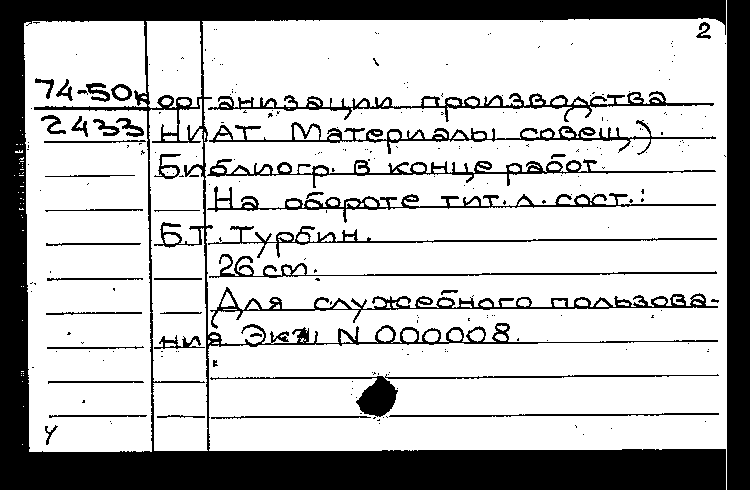 2
74-50к организации производства
2433 НИАТ. Материалы совещ.).
Библиогр. в конце работ.
На обороте тит. л. сост.:
Б.Т. Турбин.
26 cm.
Для служебного пользова-
ния Экз. N 000008.